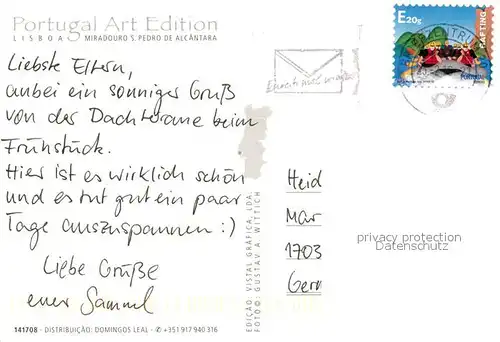 Portugal Art Edition
LISBOA MIRADOURO S. PEDRO DE ALCÂNTARA
E20g
RAFTING
PORTUGAL
Liebste Eltern,
anbei ein sonniger Gruß
von der Dachterasse beim
Frühstück.
Hier ist es wirklich schön
und es tut gut ein paar
Tage auszuspannen :)
Liebe Grüße
euer Samuel
EDIÇÃO: VISTAL GRÁFICA, LDA.
FOTO: GUSTAV A. WITTICH
Heid
Mar
1703
Gern
privacy protection
Datenschutz
141708 - DISTRIBUIÇÃO: DOMINGOS LEAL - ✆ +351 917 940 316